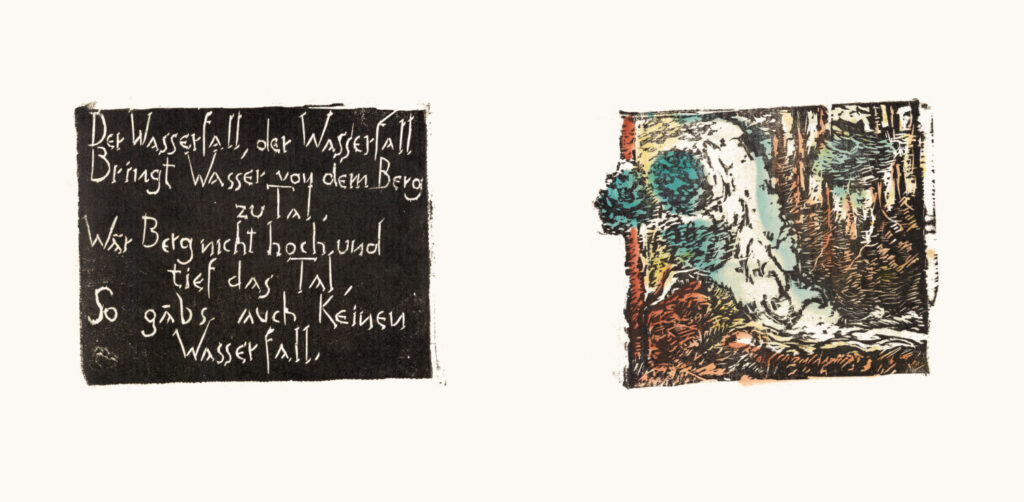 Der Wasserfall, der Wasserfall
Bringt Wasser von dem Berg
zu Tal.
Wär Berg nicht hoch und
tief das Tal,
So gäbs auch Keinen
Wasserfall.